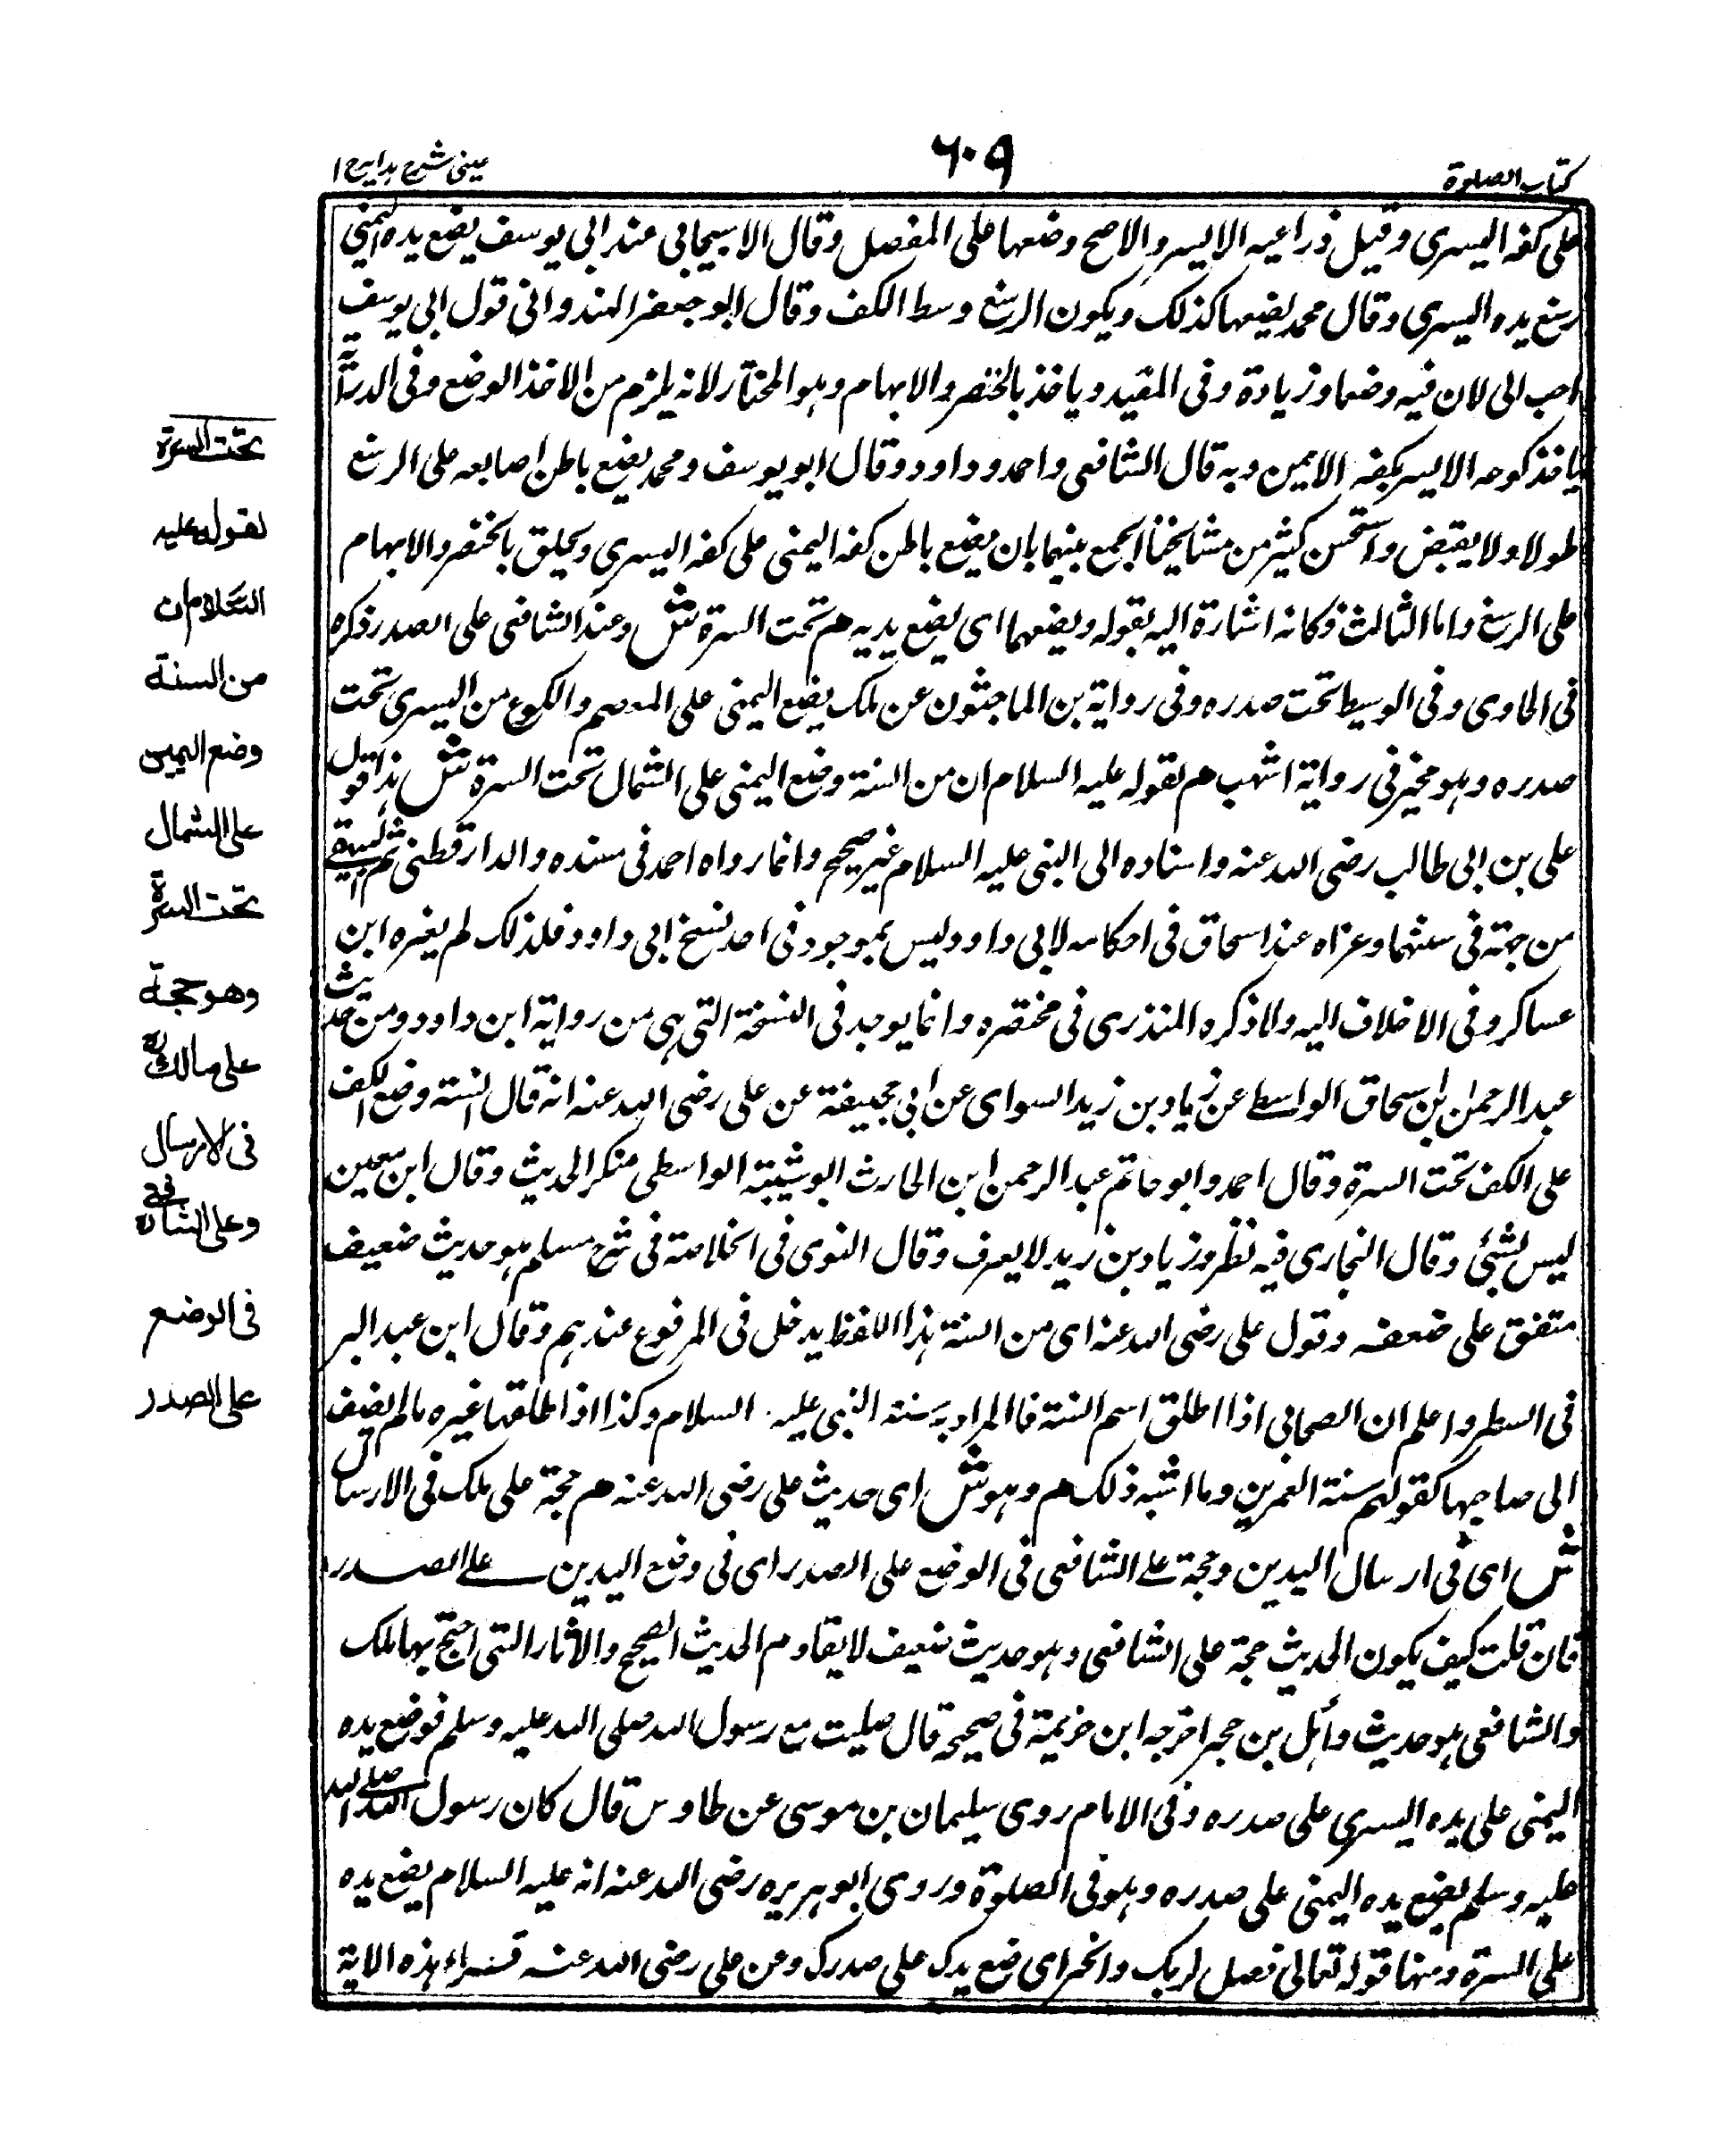 كتاب الصلوة
٦٠٩
عينى شرح ہدايہ ج ١
على كفه اليسرى وقيل ذراعيه الايسر والاصح وضعها على المفصل وقال الاسبيجابى عند ابى يوسف يضع يده اليمنى
رسغ يده اليسرى وقال محمد يضعها كذلك ويكون الرسغ وسط الكف وقال ابو جعفر الهندوانى قول ابى يوسف
احب الى لان فيه وضعا وزيادة وفى المفيد وياخذ بالخنصر والابهام وهو المختار لانه يلزم من الاخذ الوضع وفى الدراية
ياخذ كوعه الايسر بكفه الايمن وبه قال الشافعى واحمد وداود وقال ابو يوسف ومحمد يضع باطن اصابعه على الرسغ
طولا ولا يقبض واستحسن كثير من مشايخنا الجمع بينهما بان يضع باطن كفه اليمنى على كفه اليسرى ويحلق بالخنصر والابهام
على الرسغ واما الثالث فكانه اشارة اليه بقوله ويضعهما اى يضع يديه هم تحت السرة ش وعند الشافعى على الصدر ذكره
فى الحاوى وفى الوسيط تحت صدره وفى رواية بن الماجشون عن ملك يضع اليمنى على المعصم والكوع من اليسرى تحت
صدره وهو مخير فى رواية اشهب هم لقوله عليه السلام ان من السنة وضع اليمنى على الشمال تحت السرة ش هذا قول
على بن ابى طالب رضى الله عنه واسناده الى النبى عليه السلام غير صحيح وانما رواه احمد فى مسنده والدارقطنى ثم البيهقى
من جهته فى سننهما وعزاه عبد اسحاق فى احكامه لابى داود وليس بموجود فى احد نسخ ابى داود فلذلك لم يغيره ابن
عساكر وفى الاخلاف اليه ولا ذكره المنذرى فى مختصره وانما يوجد فى النسخة التى هى من رواية ابن داود ومن حديث
عبد الرحمن بن اسحاق الواسطى عن زياد بن زيد السواى عن ابى جحيفة عن على رضى الله عنه انه قال السنة وضع الكف
على الكف تحت السرة وقال احمد وابو حاتم عبد الرحمن ابن الحارث ابو شيبة الواسطى منكر الحديث وقال ابن معين
ليس بشئى وقال البخارى فيه نظر وزياد بن زيد لا يعرف وقال النوى فى الخلاصة فى شرح مسلم هو حديث ضعيف
متفق على ضعفه وقول على رضى الله عنه اى من السنة هذا اللفظ يدخل فى المرفوع عندهم وقال ابن عبد البر
فى السطر واعلم ان الصحابى اذا اطلق اسم السنة فالمراد به سنة النبى عليه السلام وكذا اذا اطلقها غيره مالم يضف
الى صاحبها كقولهم سنة العمرين وما اشبه ذلك هم وهو ش اى حديث على رضى الله عنه هم حجة على ملك فى الارسال
ش اى فى ارسال اليدين وحجة على الشافعى فى الوضع على الصدر اى فى وضع اليدين على الصدر
فان قلت كيف يكون الحديث حجة على الشافعى وهو حديث ضعيف لا يقاوم الحديث الصحيح والآثار التى احتج بها ملك
والشافعى هو حديث وائل بن حجر اخرجه ابن خزيمة فى صحيحه قال صليت مع رسول الله صلى الله عليه وسلم فوضع يده
اليمنى على يده اليسرى على صدره وفى الامام روى سليمان بن موسى عن طاوس قال كان رسول الله صلى الله
عليه وسلم يضع يده اليمنى على صدره وهو فى الصلوة وروى ابو هريره رضى الله عنه انه عليه السلام يضع يده
على السرة ومنها قوله تعالى فصل لربك وانحر اى ضع يدك على صدرك وعن على رضى الله عنه قسراء هذه الاية
تحت السرة
لقوله عليه
السلام ان
من السنة
وضع اليمين
على الشمال
تحت السرة
وهو حجة
على مالك رح
فى الارسال
وعلى الشافعى رح
فى الوضع
على الصدر